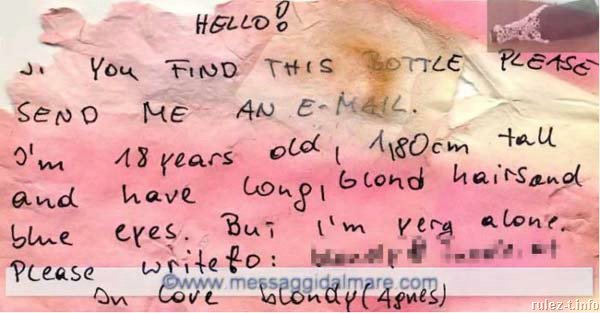 HELLO!
YOU FIND THIS BOTTLE PLEASE
SEND ME AN E-MAIL.
I'm 18 years old, 1,80cm tall
and have long, blond hairs and
blue eyes. But I'm very alone.
Please write to:
©www.messaggidalmare.com
In love blondy (Agnes)
rulez-t.info